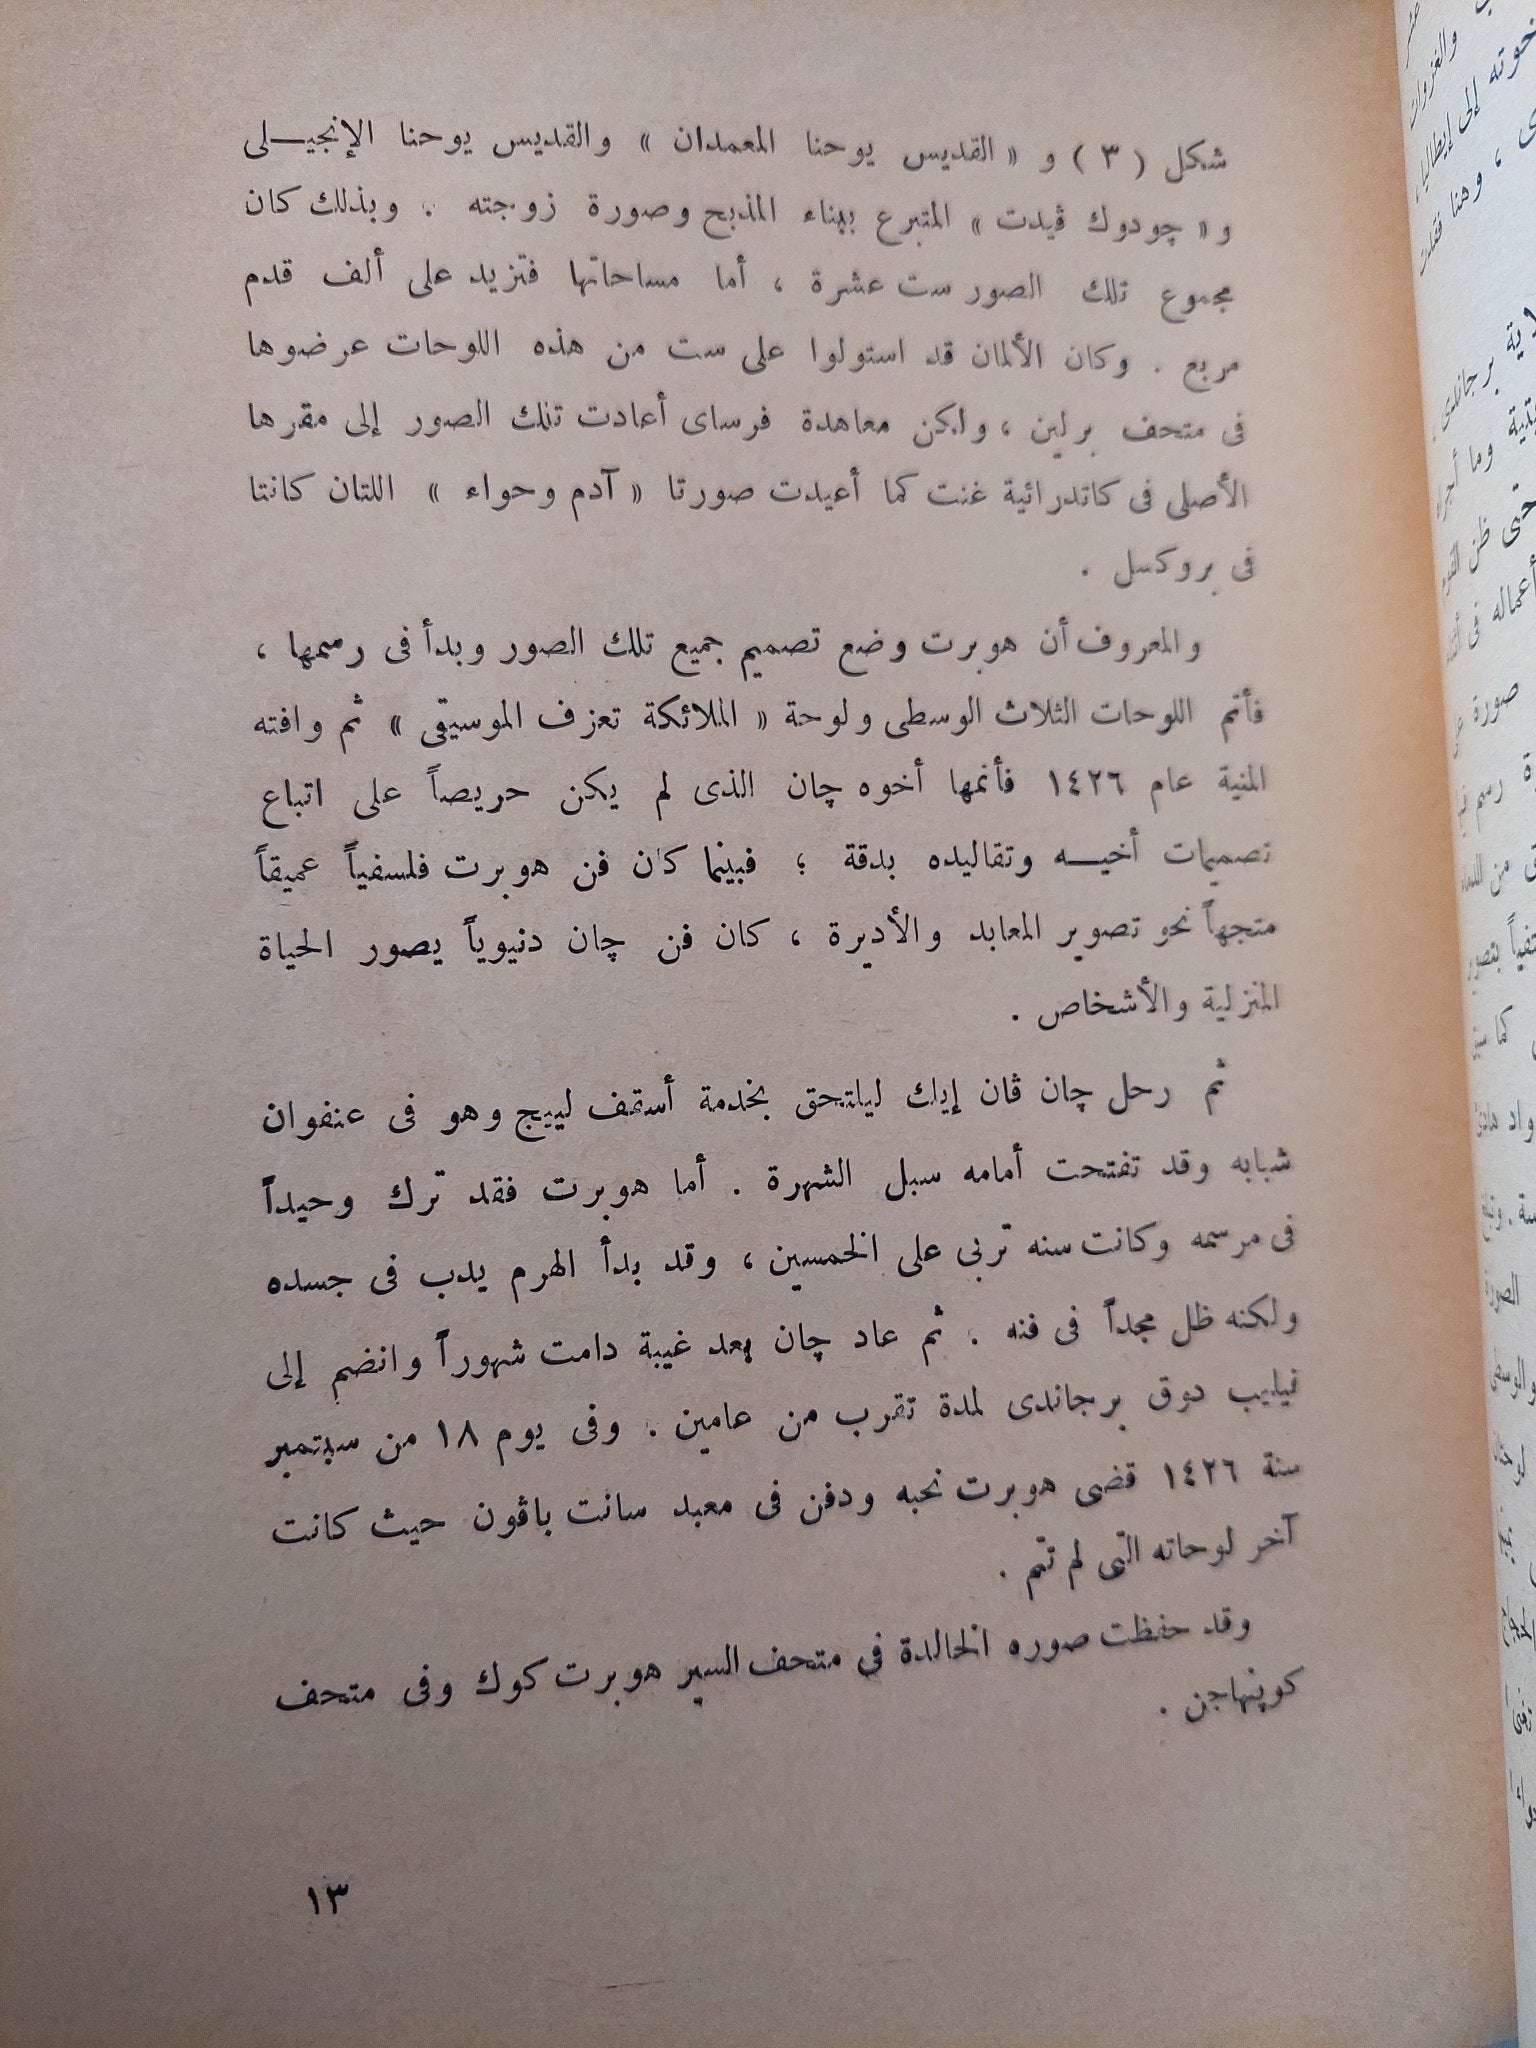 شكل ( ٣ ) و « القديس يوحنا المعمدان » والقديس يوحنا الإنجيـــلى
و « چودوك ڤيدت » المتبرع ببناء المذبح وصورة زوجته . وبذلك كان
مجموع تلك الصور ست عشرة ، أما مساحاتها فتزيد على ألف قدم
مربع . وكان الألمان قد استولوا على ست من هذه اللوحات عرضوها
فى متحف برلين ، ولكن معاهدة فرساى أعادت تلك الصور إلى مقرها
الأصلى فى كاتدرائية غنت كما أعيدت صورتا « آدم وحواء » اللتان كانتا
فى بروكسل .
والمعروف أن هوبرت وضع تصميم جميع تلك الصور وبدأ فى رسمها ،
فأتم اللوحات الثلاث الوسطى ولوحة « الملائكة تعزف الموسيقى » ثم وافته
المنية عام ١٤٢٦ فأتمها أخوه چان الذى لم يكن حريصاً على اتباع
تصميمات أخيـــه وتقاليده بدقة ؛ فبينما كان فن هوبرت فلسفياً عميقاً
متجهاً نحو تصوير المعابد والأديرة ، كان فن چان دنيوياً يصور الحياة
المنزلية والأشخاص .
ثم رحل چان ڤان إيك ليلتحق بخدمة أسقف لييج وهو فى عنفوان
شبابه وقد تفتحت أمامه سبل الشهرة . أما هوبرت فقد ترك وحيداً
فى مرسمه وكانت سنه تربى على الخمسين ، وقد بدأ الهرم يدب فى جسده
ولكنه ظل مجداً فى فنه . ثم عاد چان بعد غيبة دامت شهوراً وانضم إلى
فيليب دوق برجاندى لمدة تقرب من عامين . وفى يوم ١٨ من سبتمبر
سنة ١٤٢٦ قضى هوبرت نحبه ودفن فى معبد سانت باڤون حيث كانت
آخر لوحاته التى لم تتم .
وقد حفظت صوره الخالدة فى متحف السير هوبرت كوك وفى متحف
كوپنهاجن .
١٣